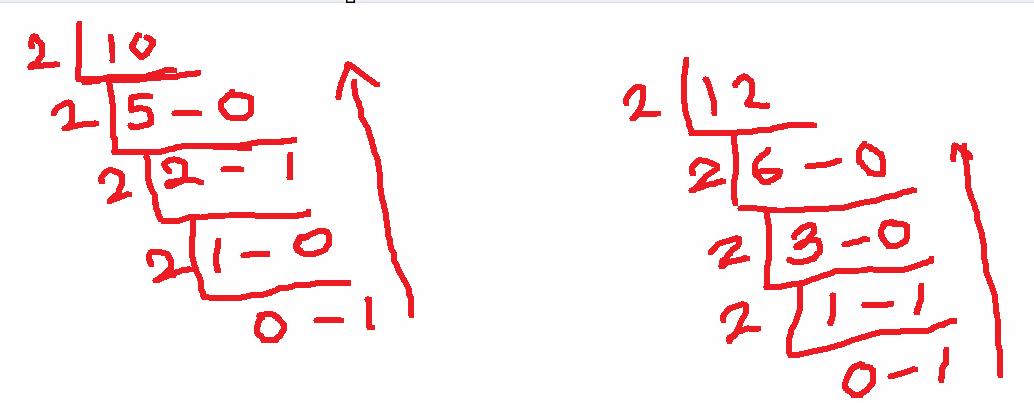 2 10
2 5 - 0
2 2 - 1
2 1 - 0
0 - 1
2 12
2 6 - 0
2 3 - 0
2 1 - 1
0 - 1